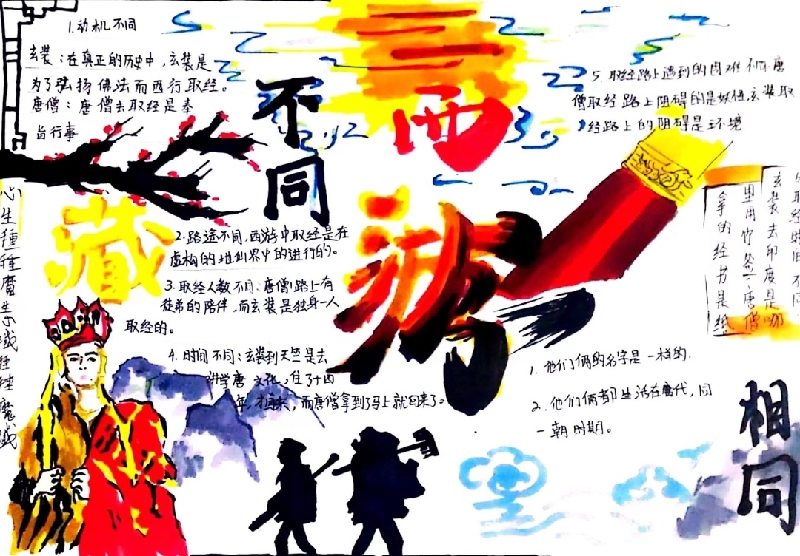 不同
1.动机不同
玄装：在真正的历史中，玄装是
为了弘扬佛法而西行取经。
唐僧：唐僧去取经是奉
旨行事
2.路途不同，西游中取经是在
虚构的地
世界中的进行的。
3.取经人数不同：唐僧路上有
徒弟的陪伴，而玄装是独身一人
取经的。
4.时间不同：玄装到天竺是去
讲学唐文化，
而唐僧拿到了马上就回来了。
5.取经路上遇到的困难不同唐
僧取经路上阻碍的是妖怪玄装取
经路上的阻碍是环境
西
游
藏
心生種種魔生
玄装去印度是
里用竹签
唐僧
拿的经书是
相同
1.他们俩的名字是一样的.
2.他们俩都生活在唐代，同
一朝时期。